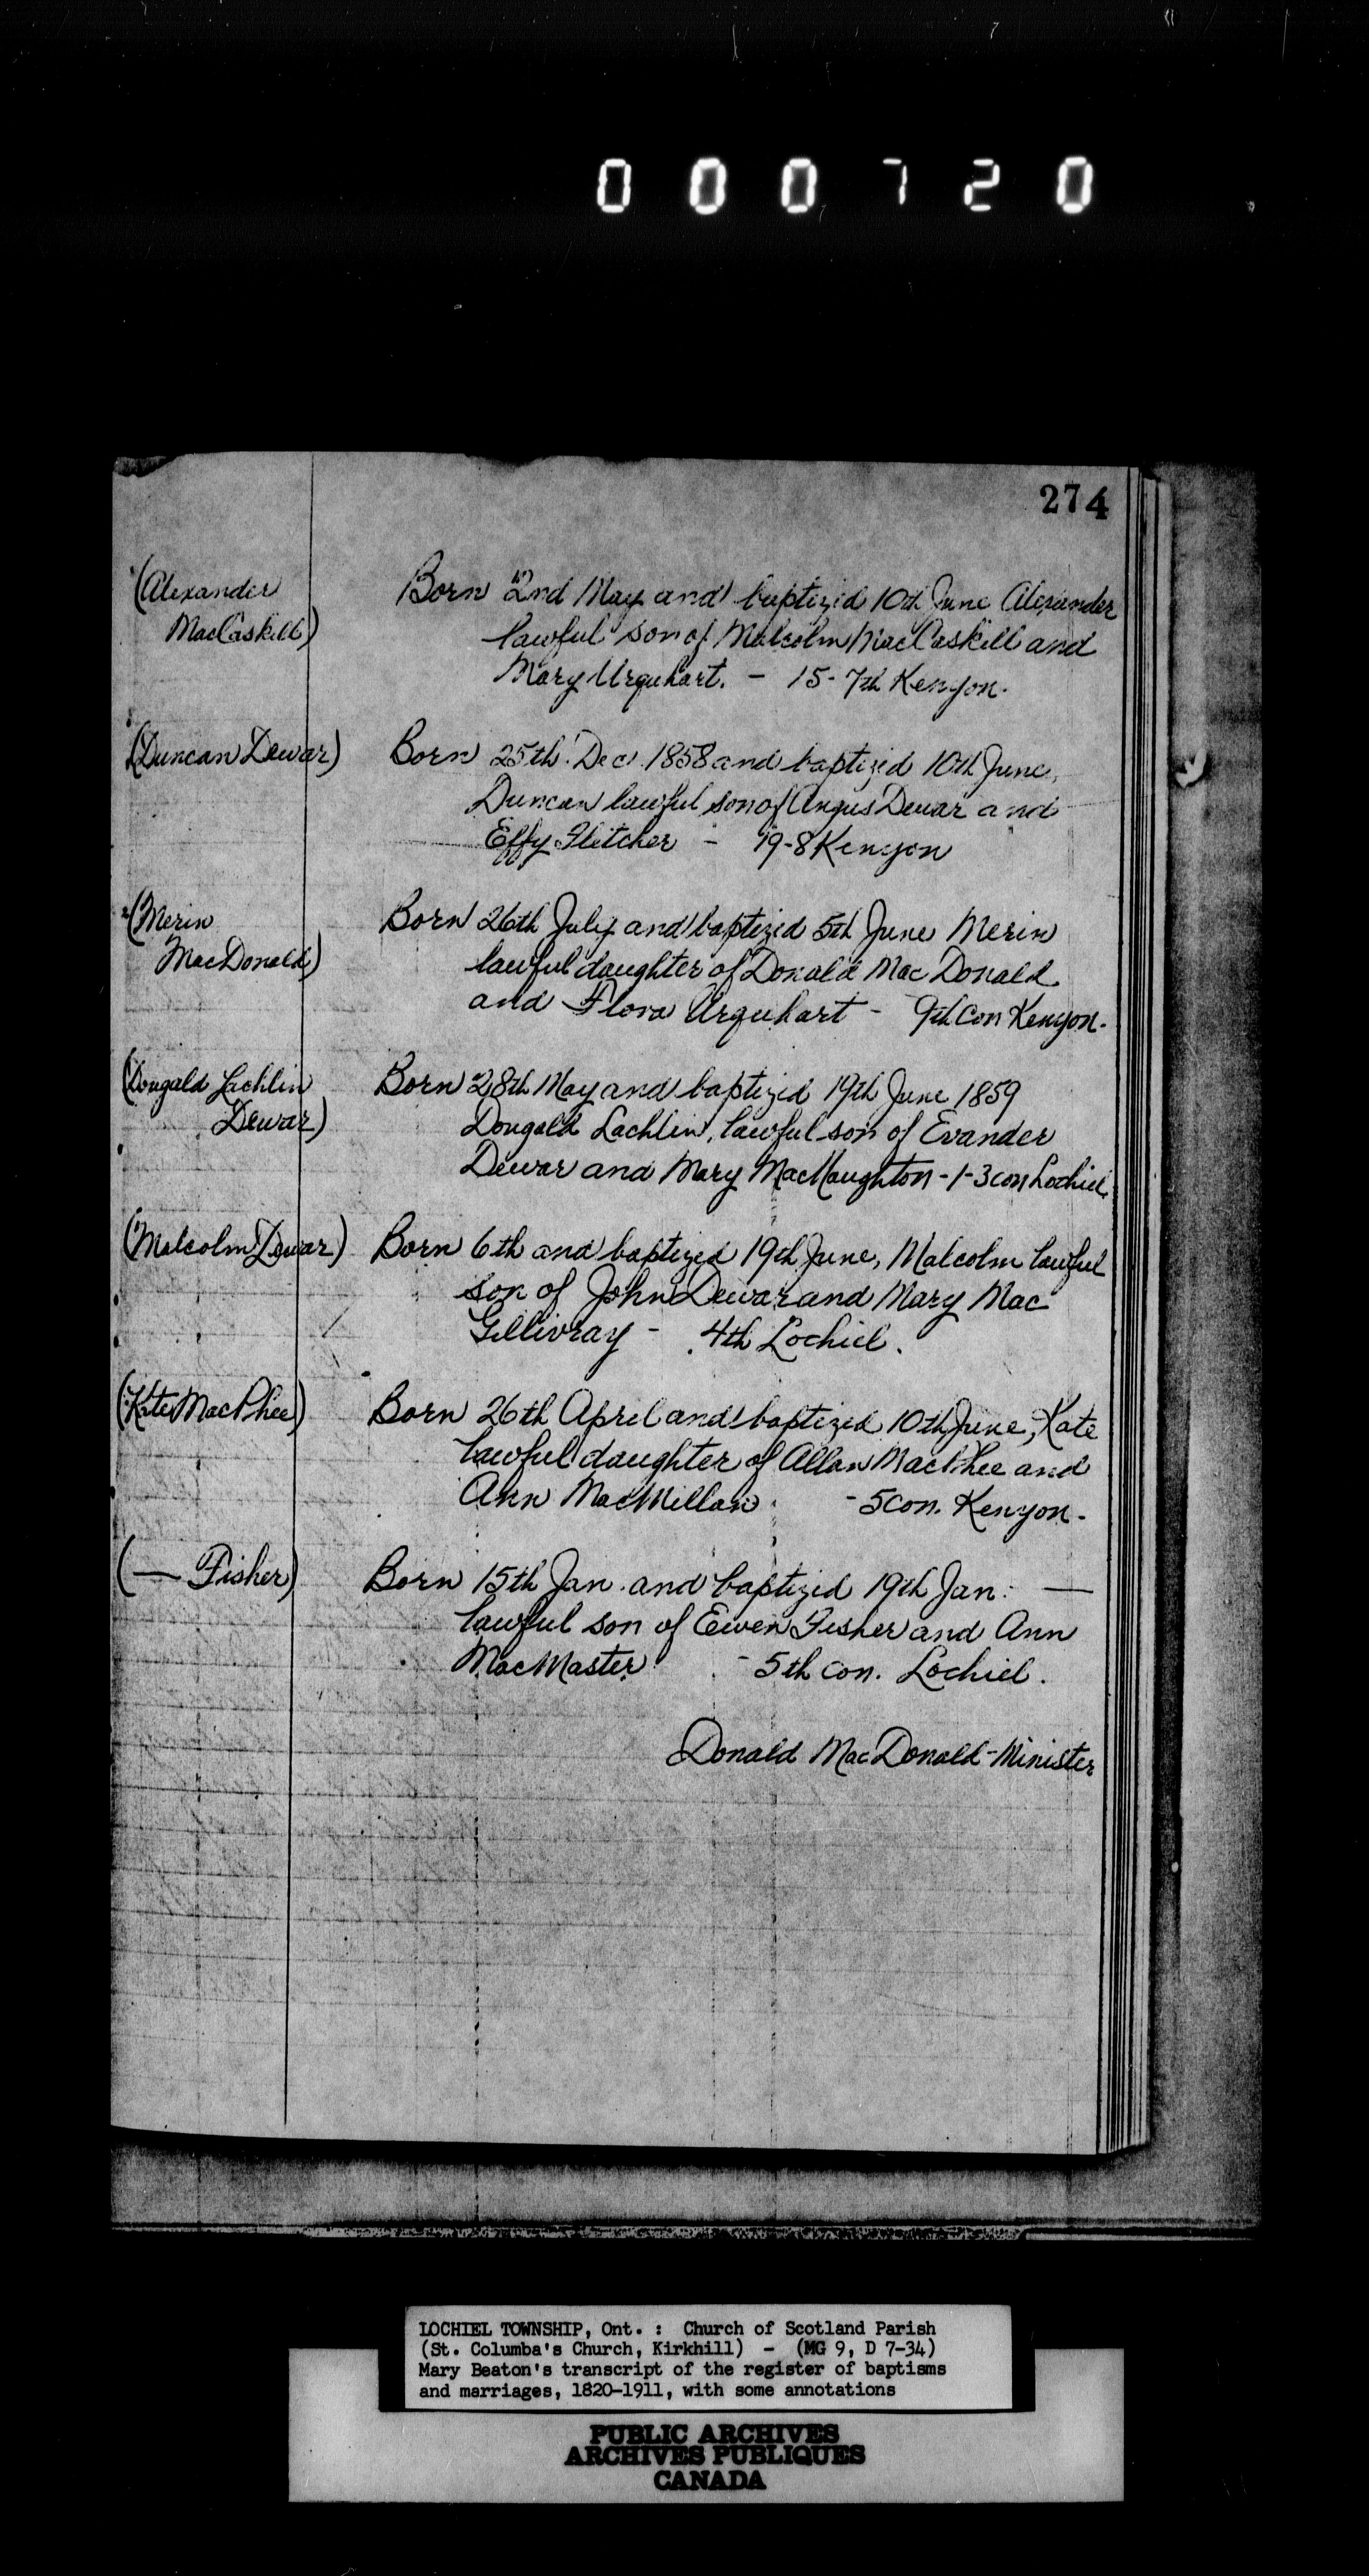 000720
274
(Alexander
MacCaskill)
Born 2nd May and baptized 10th June Alexander
lawful son of Malcolm MacCaskill and
Mary Urquhart. - 15-7th Kenyon.
(Duncan Dewar)
Born 25th Dec 1858 and baptized 10th June,
Duncan lawful son of Angus Dewar and
Effy Fletcher - 19-8 Kenyon
(Merin
MacDonald)
Born 26th July and baptized 5th June Merin
lawful daughter of Donald MacDonald
and Flora Urquhart - 9th Con Kenyon.
(Dougald Lachlin
Dewar)
Born 28th May and baptized 19th June 1859
Dougald Lachlin, lawful son of Evander
Dewar and Mary MacNaughton - 1-3 con Lochiel.
(Malcolm Dewar)
Born 6th and baptized 19th June, Malcolm lawful
son of John Dewar and Mary Mac
Gillivray - 4th Lochiel.
(Kate MacPhee)
Born 26th April and baptized 10th June, Kate
lawful daughter of Allan MacPhee and
Ann MacMillan. - 5 con. Kenyon.
(— Fisher)
Born 15th Jan. and baptized 19th Jan. —
lawful son of Ewen Fisher and Ann
MacMaster - 5th con. Lochiel.
Donald MacDonald - Minister
LOCHIEL TOWNSHIP, Ont. : Church of Scotland Parish
(St. Columba's Church, Kirkhill) - (MG 9, D 7-34)
Mary Beaton's transcript of the register of baptisms
and marriages, 1820-1911, with some annotations
PUBLIC ARCHIVES
ARCHIVES PUBLIQUES
CANADA